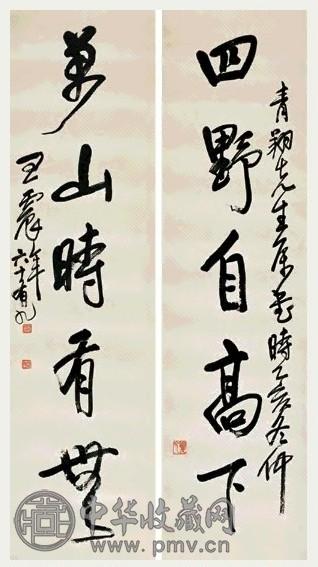 青翔先生屬書時乙亥冬仲
四野自高下
萬山時有無
王震年六十有九
中华收藏网
www.pmv.cn